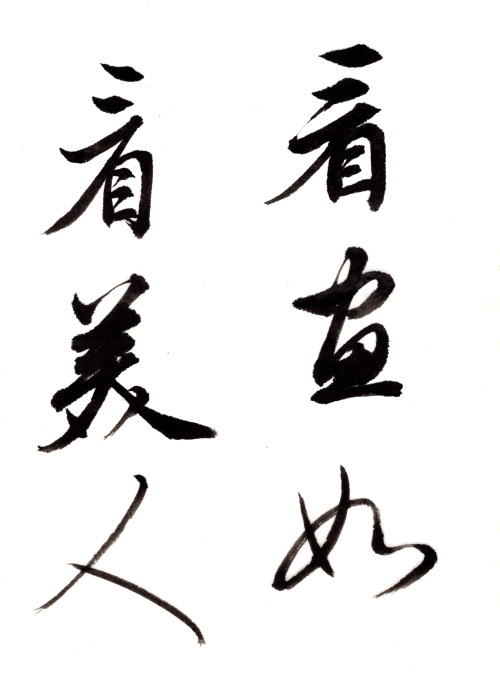 看画如
看美人